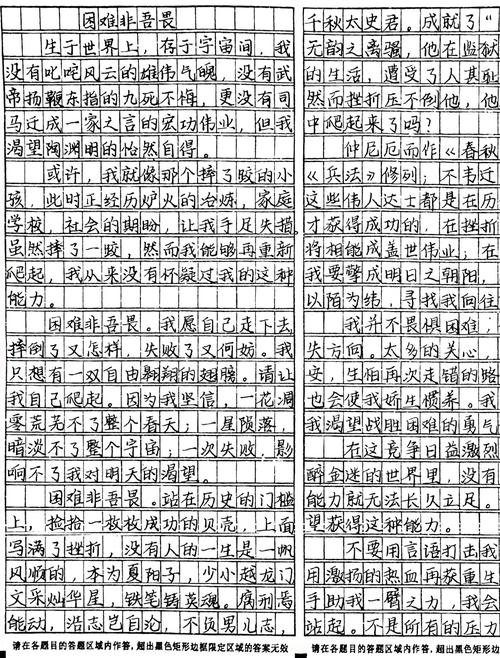 困难非吾畏
生于世界上，存于宇宙间，我
没有叱咤风云的雄伟气魄，没有武
帝扬鞭东指的九死不悔，更没有司
马迁成一家之言的宏功伟业，但我
渴望陶渊明的怡然自得。
或许，我就像那个摔了跤的小
孩，此时正经历炉火的冶炼，家庭
学校，社会的期盼，让我手足失措。
虽然摔了一跤，然而我能够再重新
爬起，我从来没有怀疑过我的这种
能力。
困难非吾畏。我愿自己走下去，
摔倒了又怎样，失败了又何妨。我
只想有一双自由翱翔的翅膀。请让
我自己爬起。因为我坚信，一花凋
零荒芜不了整个春天；一星陨落，
暗淡不了整个宇宙；一次失败，影
响不了我对明天的渴望。
困难非吾畏。站在历史的门槛
上，捡拾一枚枚成功的贝壳，上面
写满了挫折，没有人的一生是一帆
风顺的，本为夏阳子，少小越龙门
文采灿华星，铁笔铸英魂。腐刑焉
能动，浩志岂自沦，不负男儿志，
请在各题目的答题区域内作答，超出黑色矩形边框限定区域的答案无效
千秋太史君。成就了“
无韵之离骚，他在监狱
的生活，遭受了人其耻
然而挫折压不倒他，他
中爬起来了吗？
仲尼厄而作《春秋
《兵法》修列；不韦迁
这些伟人达士都是在历
才获得成功的，在挫折
将相能成盖世伟业；在
我要擎成明日之朝阳，
以陌为纬，寻找我向往
我并不畏惧困难；
失方向。太多的关心，
安，生怕再次走错的路
也会使我娇生惯养。我
我渴望战胜困难的勇气
在这竞争日益激烈
醉金迷的世界里，没有
能力就无法长久立足。
望获得这种能力。
不要用言语打击我
用激扬的热血再获重生
手助我一臂之力，我会
站起。不是所有的压力
请在各题目的答题区域内作答，超出黑色矩形边